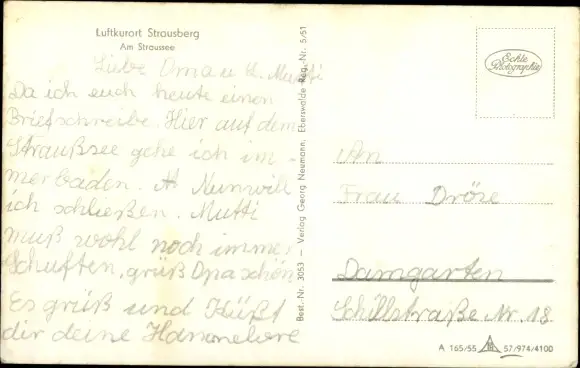 Luftkurort Strausberg
Am Straussee
Liebe Oma u d. Mutti
Da ich euch heute einen
Brief schreibe. Hier auf dem
Straußsee gehe ich im -
mer baden. Nun will
ich schließen. Mutti
muß wohl noch immer
Schuften, grüß Opa schön
Es grüß und Küßt
dir deine Hannelore
Best.-Nr. 3053 — Verlag Georg Neumann, Eberswalde Reg.-Nr. 5/51
Echte
Photographie
An
Frau Dröse
Damgarten
Schillstraße Nr. 18
A 165/55 57/974/4100